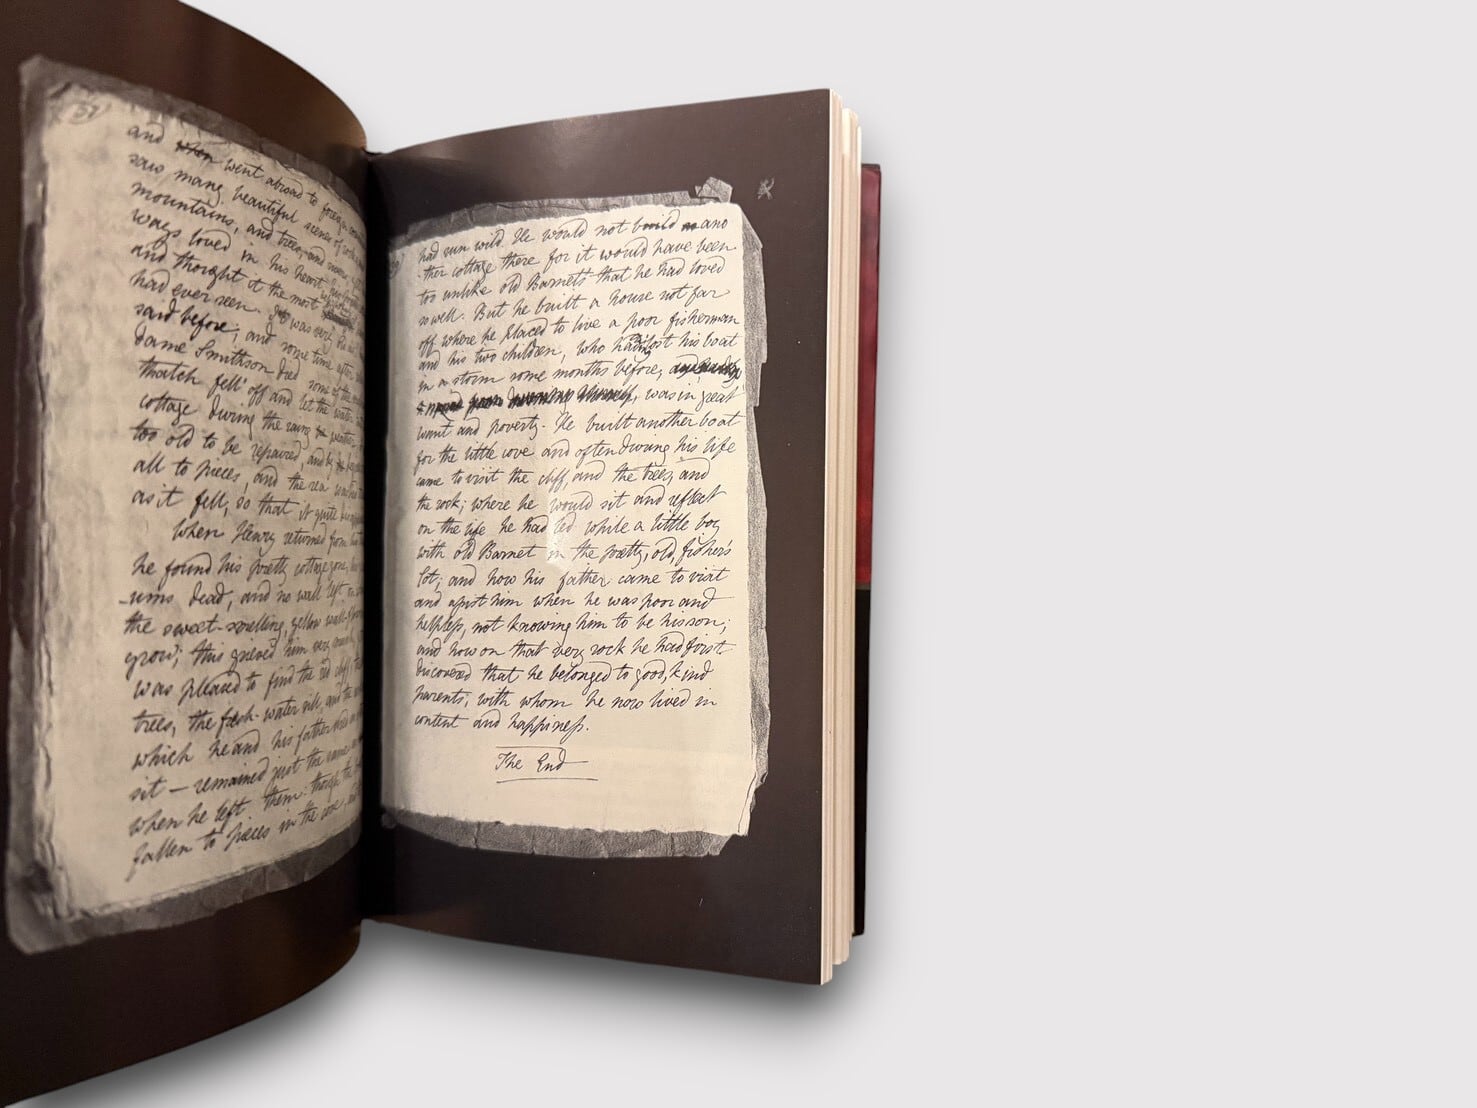 and when went abroad to foreign
saw many beautiful scenes of
mountains, and trees, and
ways loved in his heart
and thought it the most
had ever seen. It was very
said before, and some time after
Dame Smithson died some of the
thatch fell off and let the water
cottage during the rainy
too old to be repaired, and
all to pieces, and the sea washed
as it fell, so that it quite
When Henry returned from
he found his pretty cottage gone,
-ums dead, and no wall left
the sweet-smelling yellow wall-
grow; this grieved him very
was pleased to find the old cliff, the
trees, the fresh-water rill and the
which he and his father
sit – remained just the same
when he left them: though the
fallen to pieces in the cove,
had run wild. He would not build ano
-ther cottage there for it would have been
too unlike old Barnets that he had loved
so well. But he built a house not far
off where he placed to live a poor fisherman
and his two children, who having lost his boat
in a storm some months before,
was in great
want and poverty. He built another boat
for the little cove and often during his life
came to visit the cliff, and the trees, and
the rock; where he would sit and reflect
on the life he had led while a little boy
with old Barnet in the pretty, old, fisher's
Cot; and how his father came to visit
and assist him when he was poor and
helpless, not knowing him to be his son;
and how on that very rock he had first
discovered that he belonged to good, kind
parents, with whom he now lived in
content and happiness.
The End